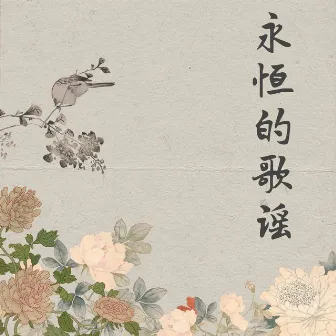 永恒的歌谣